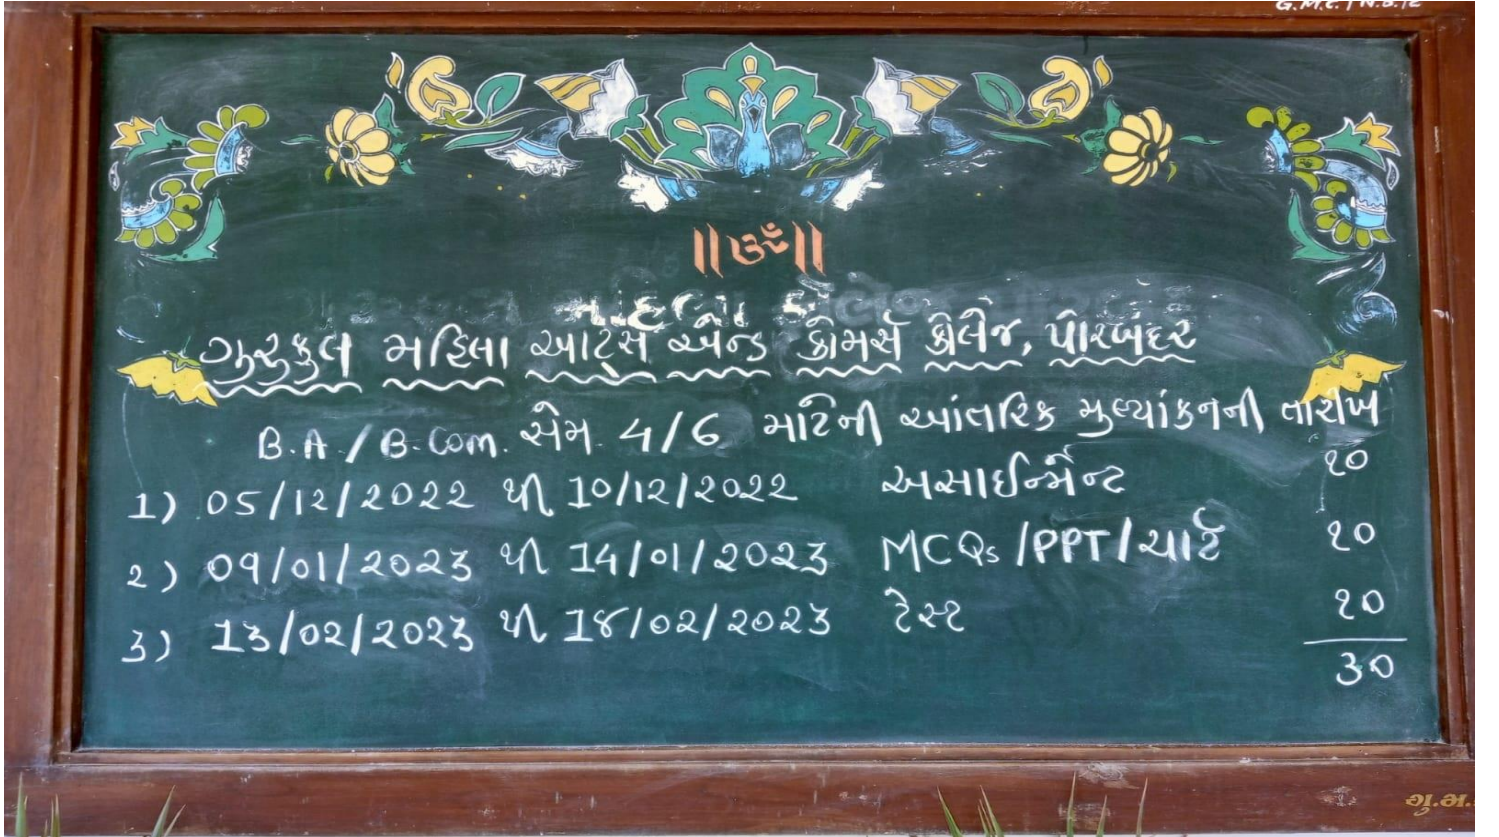 G.M.C./N.B./2
॥ૐ॥
ગુરુકુલ મહિલા આર્ટ્સ એન્ડ કોમર્સ કોલેજ, પોરબંદર
B.A./B.Com. સેમ. 4/6 માટેની આંતરિક મુલ્યાંકનની તારીખ
1) 05/12/2022 થી 10/12/2022 અસાઈન્મેન્ટ ૧૦
૨) 09/01/2023 થી 14/01/2023 MCQs/PPT/ચાર્ટ ૧૦
૩) 13/02/2023 થી 18/02/2023 ટેસ્ટ ૧૦
30
ગુ.મ.